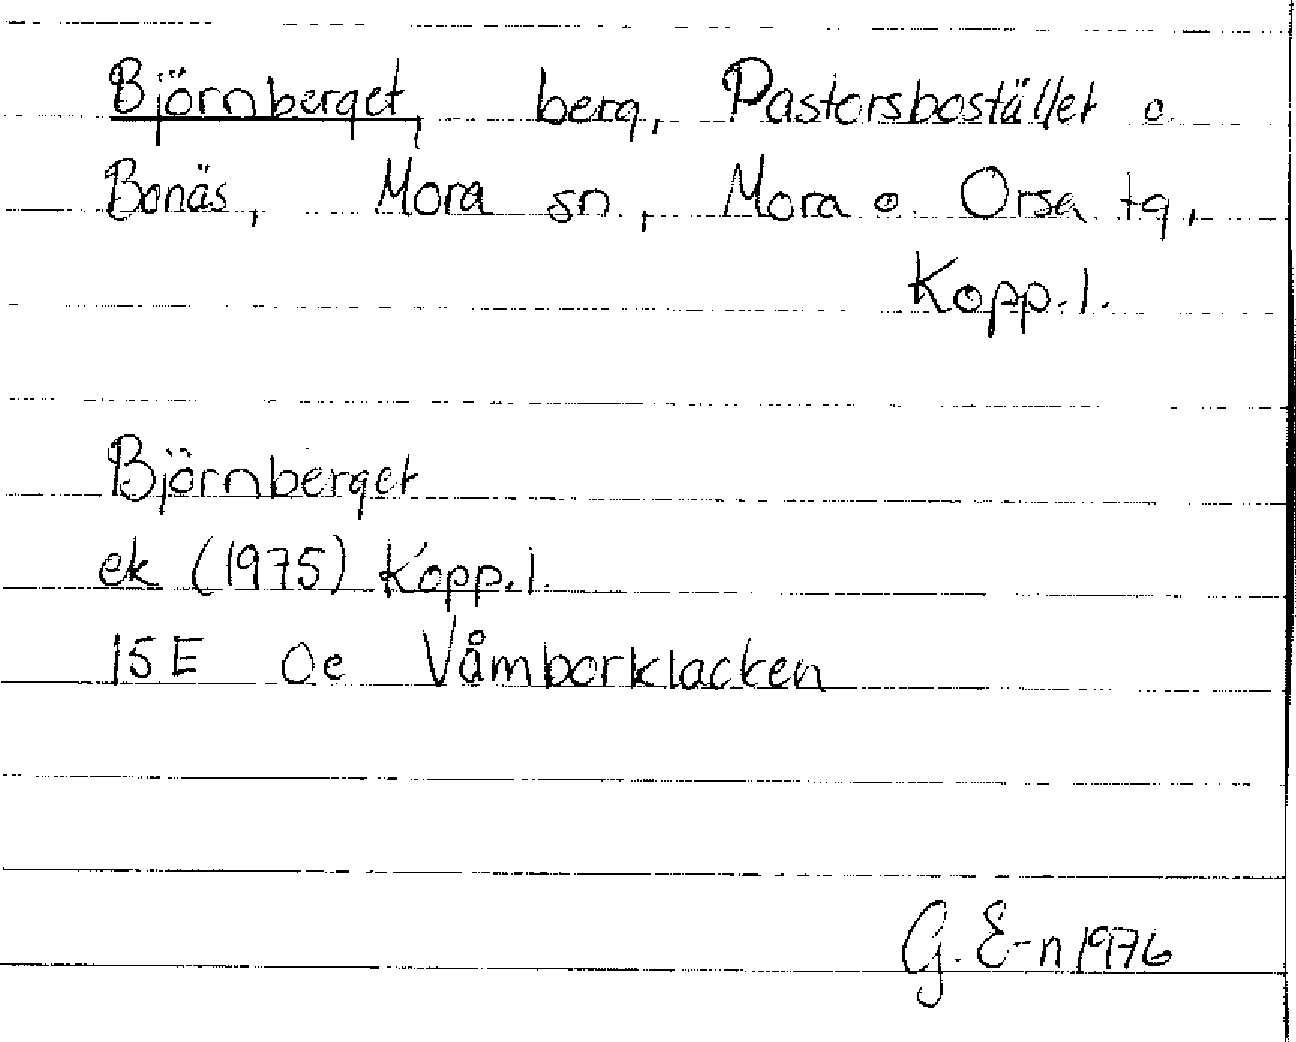 Björnberget, berg, Pastorsbostället o.
Bonäs, Mora sn., Mora o. Orsa tg.,
Kopp. l.
Björnberget
ek (1975) Kopp. l.
15E 0e Våmborklacken
G. E-n 1976